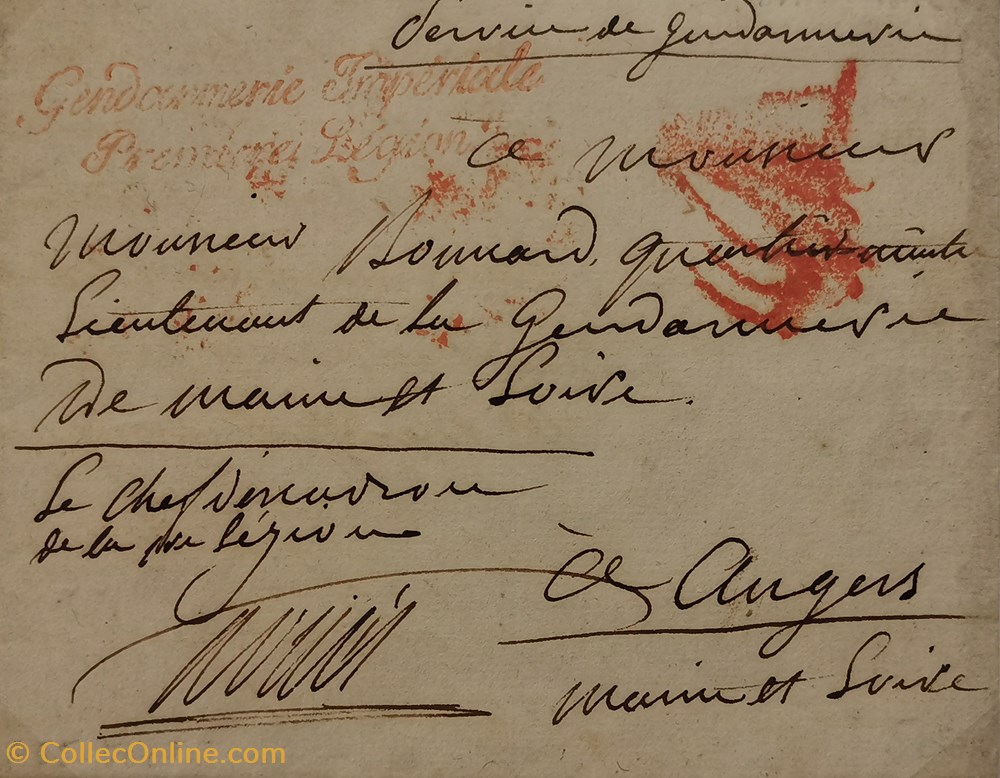 Service de Gendarmerie
Gendarmerie Impériale
Première Légion
a Monsieur
Monsieur Bonnard, quartier maitre
Lieutenant de la Gendarmerie
De Maine et Loire.
Le Chef d'escadron
de la 1re Légion
a Angers
Maine et Loire
© CollecOnline.com